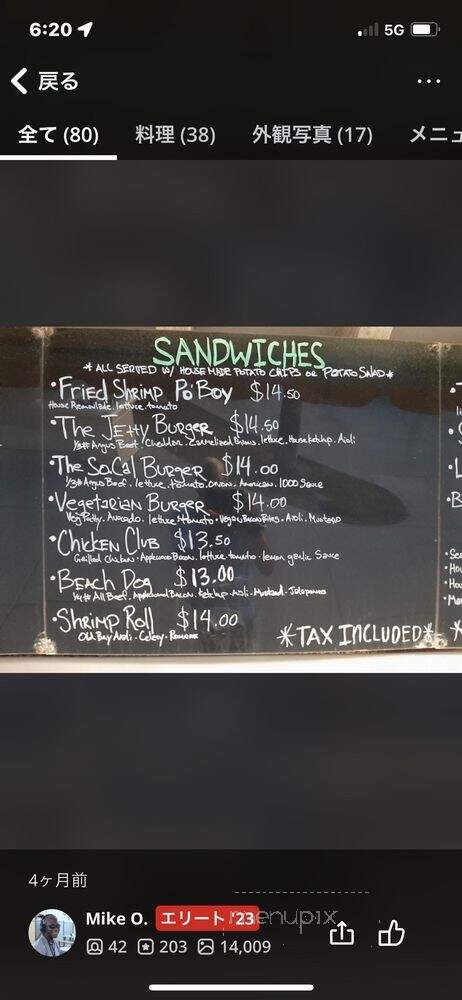 6:20
5G
戻る
全て (80) 料理 (38) 外観写真 (17) メニュ
SANDWICHES
*ALL SERVED W/ HOUSE MADE POTATO CHIPS or POTATO SALAD*
•Fried Shrimp Po'Boy $14.50
House Remoulade. lettuce. tomato
•The Jetty Burger $14.50
1/3# Angus Beef. Cheddar. Caramelized Onions. lettuce. House ketchup. Aioli
•The SoCal Burger $14.00
1/3# Angus Beef. lettuce. tomato. onion. American. 1000 Sauce
•Vegetarian Burger $14.00
Veg Patty. Avocado. lettuce. tomato. Vegan Bacon Bites. Aioli. Mustard
•Chicken Club $13.50
Grilled Chicken. Applewood Bacon. lettuce. tomato. lemon garlic Sauce
•Beach Dog $13.00
1/4# All Beef. Applewood Bacon. Ketchup. Aioli. Mustard. Jalapenos
•Shrimp Roll $14.00
Old Bay Aioli. Celery. Romaine
*TAX INCLUDED*
4ヶ月前
Mike O. エリート '23
menupix
42 203 14,009